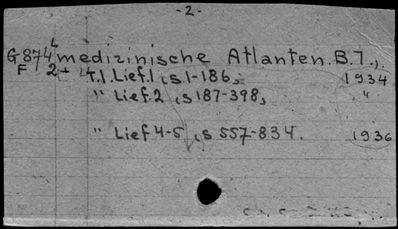 -2-
G874 medizinische Atlanten. B.7.,
F 2+ 4 T.1. Lief.1, S 1-186, 1934
" Lief.2, S 187-398, "
" Lief 4-5, S 557-834. 1936